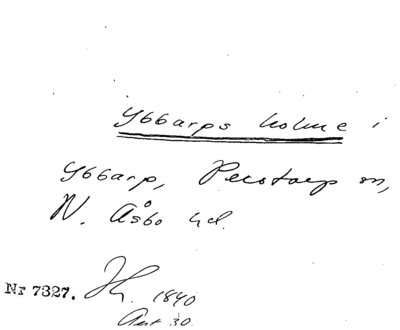 Ybbarps holme i
Ybbarp, Perstorp sn,
N. Åsbo hd.
Nr 7327. 1840
30.